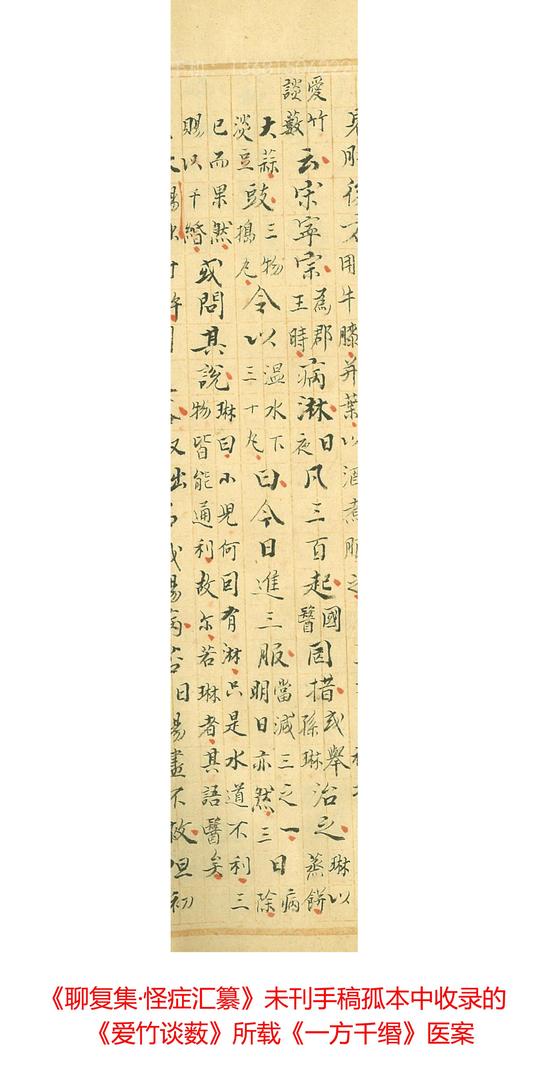 用牛膝并葉以酒煮服之
愛竹談藪云宋寧宗為郡王時病淋日夜凡三百起國醫罔措或舉孫琳治之琳以蒸餅
大蒜淡豆豉三物搗丸令以温水下三十丸曰今日進三服當減三之一明日亦然三日病除
已而果然賜以千緡或問其說琳曰小兒何因有淋只是水道不利三物皆能通利故尔若琳者其語醫矣
又出
《聊复集·怪症汇纂》未刊手稿孤本中收录的
《爱竹谈薮》所载《一方千缗》医案